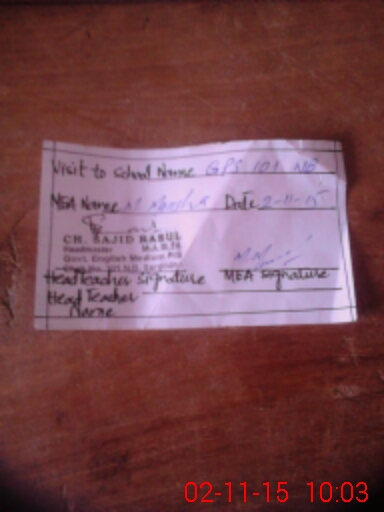 Visit to School Name GPS 101 NB
MEA Name M. Date 2-11-15
CH. SAJID RASUL
Headmaster M.A.B.Ed
Govt. English Medium P/S
Chak No. 101 N.B.
Head Teacher Signature MEA Signature
Head Teacher
Name
02-11-15 10:03